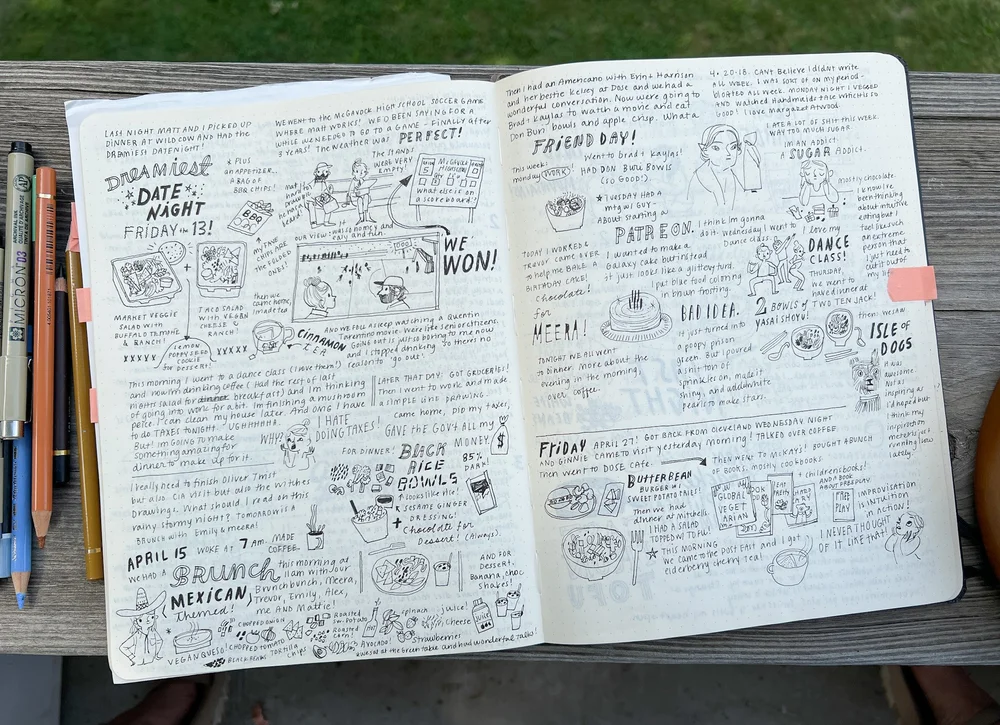 MICRON 03
LAST NIGHT MATT AND I PICKED UP
DINNER AT WILD COW AND HAD THE
DREAMIEST DATE NIGHT!
DREAMIEST
DATE
NIGHT
FRIDAY THE 13!
* PLUS
an APPETIZER...
A BAG OF
BBQ CHIPS!
BBQ
THE
CHIPS ARE
THE FOLDED
ONES!
MARKET VEGGIE
SALAD WITH
BUFFALO TEMPHE
& RANCH!
TACO SALAD
WITH VEGAN
CHEESE &
RANCH!
XXXXX
LEMON
POPPYSEED
COOKIE
for DESSERT!
XXXXX
WE WENT to the McGAVOCK HIGH SCHOOL SOCCER GAME
WHERE MATT WORKS! WE'D BEEN SAYING FOR A
WHILE WE NEEDED TO GO TO A GAME - FINALLY After
3 YEARS! The Weather was PERFECT!
The STANDS
WERE VERY
EMPTY
McGAVOCK
What else is on
a scoreboard!
OUR VIEW:
WE
WON!
then we
came home,
made tea
CINNAMON
TEA
AND WE FELL ASLEEP WATCHING A Quentin
Tarantino movie. We're like senior citizens.
GOING OUT is just so boring to me now
and I stopped drinking so there's no
reason to "go out".
This morning I went to a dance class (I love them!)
and now I'm drinking coffee (Had the rest of last
night's salad for dinner breakfast) and I'm thinking
of going into work for a bit. I'm finishing a mushroom
piece. I can clean my house later. And OMG I HAVE
to do TAXES TONIGHT. UGHHHHHH.
But! I'm GOING TO make
Something amazing for
dinner to make up for it.
WHY?
I HATE
DOING TAXES!
LATER THAT DAY: GOT GROCERIES!
Then I went to work and made
a simple line drawing.
Came home, Did my taxes,
GAVE the GOV'T ALL my
MONEY.
$
I really need to finish Oliver Twist
but also CIA visit but also the witches
Drawings. What should I read on this
rainy stormy night? TOMORROW IS A
BRUNCH WITH Emily & Meera!
FOR DINNER!
BLACK
RICE
BOWLS
looked like this!
SESAME GINGER
DRESSING!
+
Chocolate for
Dessert! (Always).
85%
DARK!
APRIL 15 WOKE AT 7 AM. MADE
COFFEE.
WE HAD A BRUNCH this morning at
11am with Our
Brunch bunch, Meera,
Trevor, Emily, Alex,
me AND Mattie!
MEXICAN
themed!
AND FOR
Dessert.
Banana, choc
shakes!
VEGAN QUESO!
CHOPPED ONION
CHOPPED TOMATO
BLACK BEANS
TORTILLA
CHIPS
Roasted
SW. POTATO
Roasted
Corn!
AVOCADO!
spinach
cheese
juice!
juice
Strawberries
we sat at the green table and had wonderful talks!
Then I had an Americano with Erin + Harrison
and her bestie Kelsey at Dose and we had a
wonderful conversation. Now we're going to
Brad + Kaylas to watch a movie and eat
Don Buri bowls and apple crisp. What a
FRIEND DAY!
This week!
monday WORK
Went to brad + kaylas!
HAD DON BURI BOWLS
(SO GOOD!).
★ TUESDAY HAD A
mtg w/ GUY -
ABOUT starting a
PATREON.
TODAY I WORKED &
TREVOR CAME OVER
to help me BAKE A
BIRTHDAY CAKE!
Chocolate!
for
MEERA!
I think I'm gonna
do it.
I wanted to make a
Galaxy cake but instead
it just looks like a glittery turd.
I put blue food coloring
in brown frosting.
BAD IDEA.
it just turned into
a poopy prison
green. But I poured
a shit ton of
sprinkles on, made it
shiny, and added white
pearls to make stars.
TONIGHT WE ALL WENT
to Dinner. More about the
evening in the morning.
over coffee.
4.20.18. CAN'T Believe I didn't write
ALL WEEK. I WAS SORT OF ON my period -
bloated ALL WEEK. MONDAY NIGHT I VEGGED
AND watched Handmaids Tale which is so
Good! I love Margaret Atwood.
I ATE A LOT OF SHIT THIS WEEK.
WAY TOO MUCH SUGAR.
IM AN ADDICT.
A SUGAR ADDICT.
mostly chocolate.
I know I've
been thinking
about intuitive
eating but I
am such an
extreme
person that I
just cut it
out of
my life
Wednesday I went to
Dance class.
I love my
DANCE
CLASS!
THURSDAY,
we went to
have dinner at
TWO TEN JACK!
2 BOWLS of
YASAI SHOYU!
then: we saw
ISLE OF
DOGS
It was
awesome.
Not as
inspiring as
I'd hoped but
I think my
inspiration
meter is just
running low
lately.
FRIDAY APRIL 27! GOT BACK FROM CLEVELAND WEDNESDAY NIGHT
AND GINNIE CAME to visit yesterday morning! TALKED OVER COFFEE.
Then went to DOSE CAFE.
THEN WENT TO McKAYS! I BOUGHT A BUNCH
OF BOOKS. MOSTLY COOKBOOKS.
+ childrens books!
BUTTERBEAN
BURGER w/
SWEET POTATO FRIES!
Then we had
dinner at Mitchell.
I HAD A SALAD
TOPPED w/ TOFU!
GLOBAL
VEGET
ARIAN
AND A BOOK
ABOUT FREEPLAY
FREE
PLAY
IMPROVISATION
is INTUITION
in ACTION!
I NEVER THOUGHT
OF IT LIKE that!
★ THIS MORNING
We came to the POST EAST and I got
elderberry cherry tea!